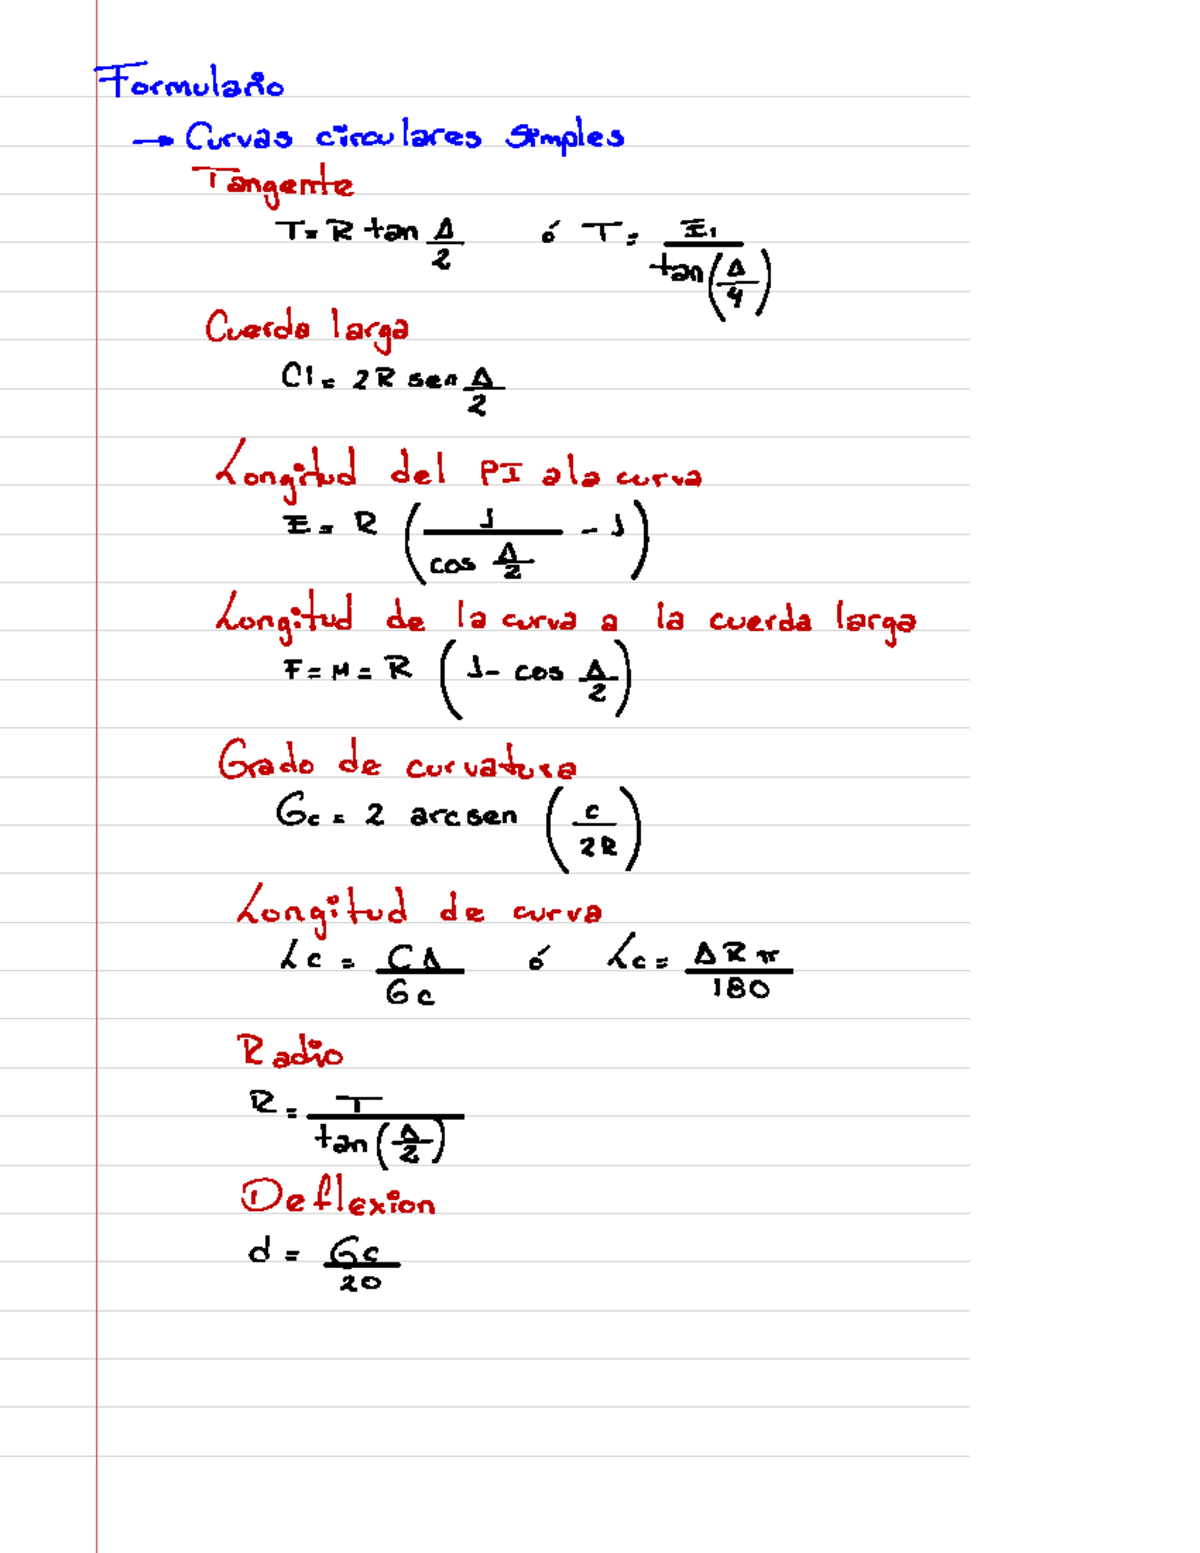 Formulario
→ Curvas circulares Simples
Tangente
T = R tan Δ/2 ó T = E₁/tan(Δ/4)
Cuerda larga
Cl = 2R sen Δ/2
Longitud del PI a la curva
E = R (1/cos Δ/2 - 1)
Longitud de la curva a la cuerda larga
F = M = R (1 - cos Δ/2)
Grado de curvatura
Gc = 2 arcsen (c/2R)
Longitud de curva
Lc = CΔ/Gc ó Lc = ΔRπ/180
Radio
R = T/tan(Δ/2)
Deflexion
d = Gc/20